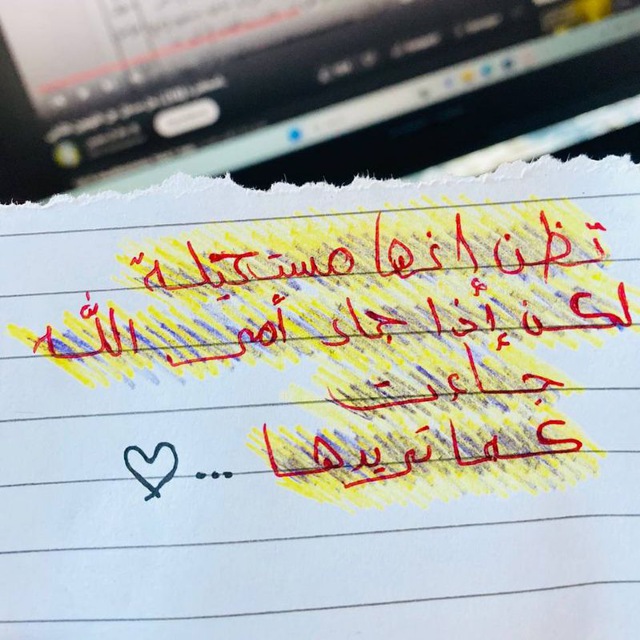 تظن انها مستحيلة
لكن إذا جاء أمر الله
جاءت
كما تريدها ...